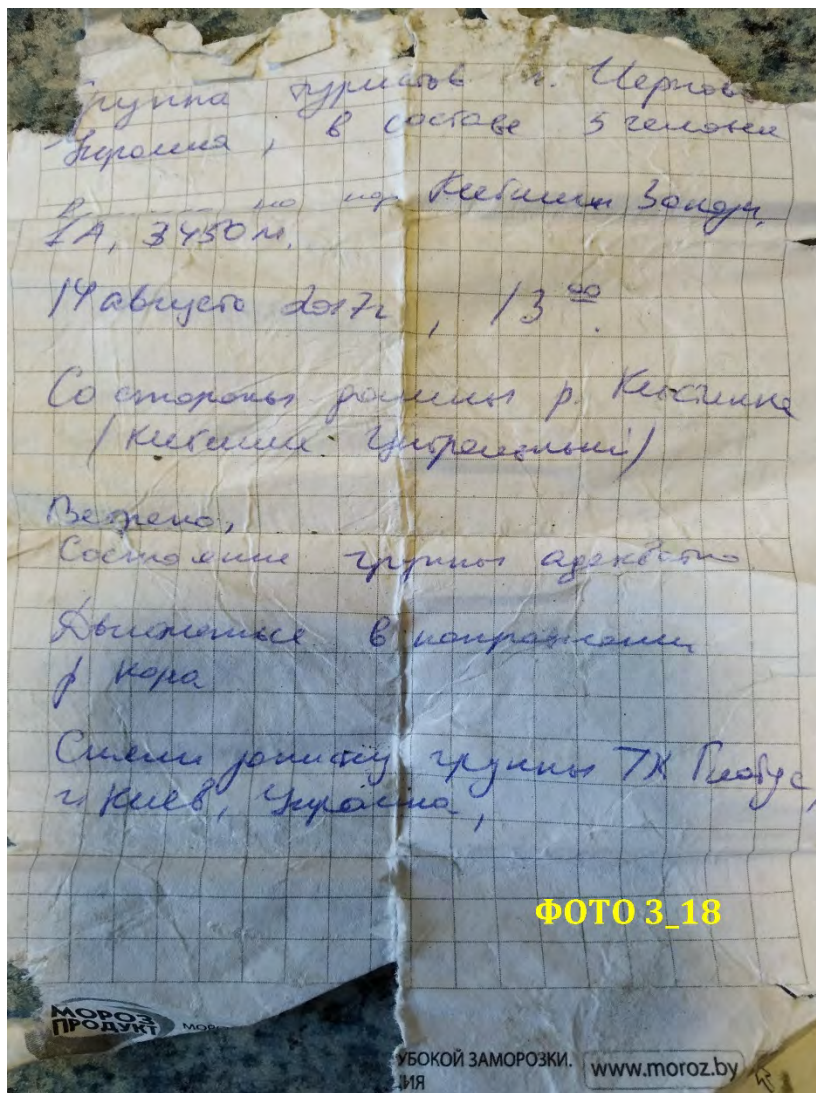 Группа туристов г. Чернов
Украина, в составе 5 человек
на пер. Кебиши Запад.,
1А, 3450 м.
14 августа 2017г, 13⁰⁰.
Со стороны долины р.
(Кебиши Центральный)
Ветрено,
Состояние группы адекватно.
Движемся в направлении
р Кора
Сняли записку группы ТК Глобус,
г. Киев, Украина,
ФОТО 3_18
МОРОЗ
ПРОДУКТ
УБОКОЙ ЗАМОРОЗКИ.
www.moroz.by
ИЯ